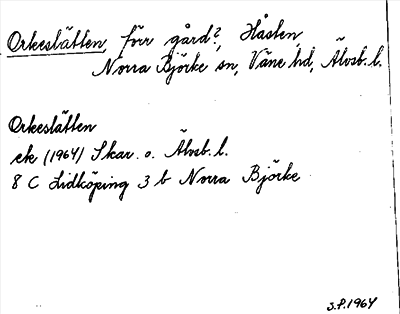 Orkeslätten, förr gård?, Håsten,
Norra Björke sn, Väne hd, Älvsb. l.
Orkeslätten
ek (1964) Skar. o. Älvsb. l.
8 C Lidköping 3 b Norra Björke
S.P. 1964